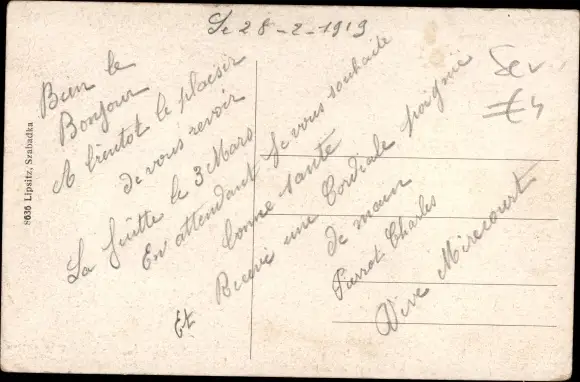 Le 28-2-1919
Bien le
Bonjour
A bientot le plaisir
de vous revoir
La fuitte le 3 Mars
En attendant Je vous souhaite
bonne santé
Et Recevé une Cordiale poignié
de main
Pierrot Charles
Vive Mirecourt
8636 Lipsitz, Szabadka